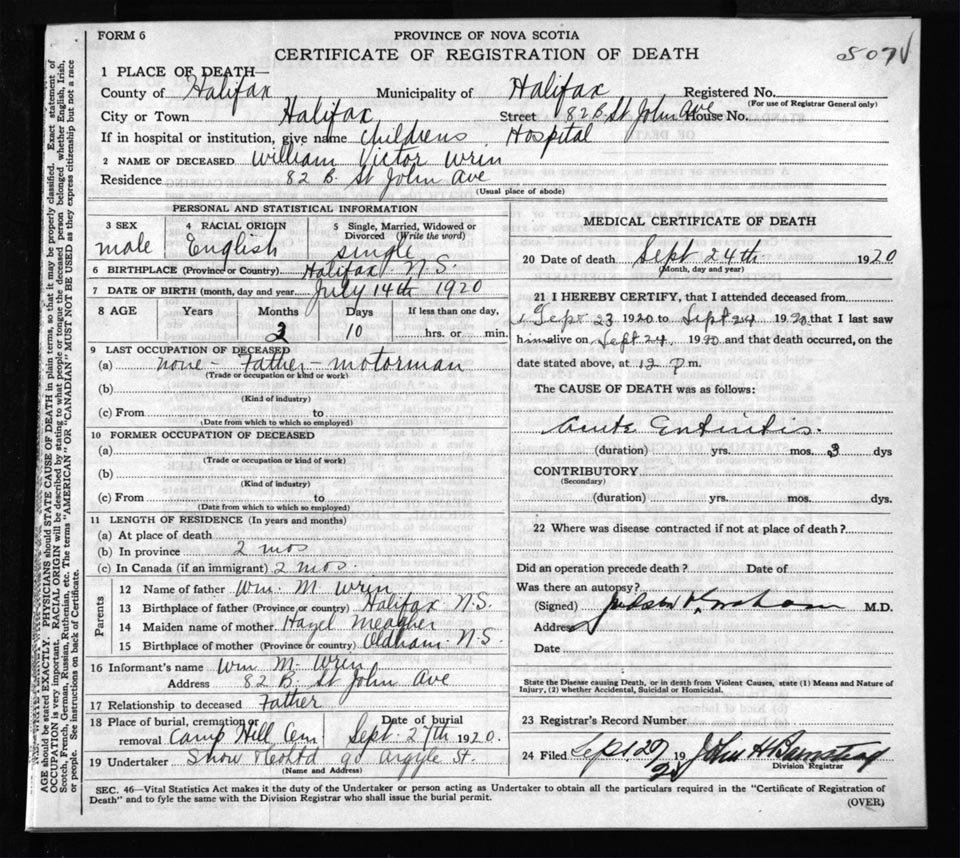 FORM 6
PROVINCE OF NOVA SCOTIA
CERTIFICATE OF REGISTRATION OF DEATH
1 PLACE OF DEATH—
County of Halifax Municipality of Halifax Registered No.
(For use of Registrar General only)
City or Town Halifax Street 82 B. St John Ave House No.
If in hospital or institution, give name Childrens Hospital
2 NAME OF DECEASED William Victor Wrin
Residence 82 B. St John Ave
(Usual place of abode)
PERSONAL AND STATISTICAL INFORMATION
3 SEX 4 RACIAL ORIGIN 5 Single, Married, Widowed or Divorced (Write the word)
male English single
6 BIRTHPLACE (Province or Country) Halifax N.S.
7 DATE OF BIRTH (month, day and year July 14th 1920
8 AGE Years Months Days If less than one day,
2 10 hrs. or min.
9 LAST OCCUPATION OF DECEASED
(a) none - Father motorman
(Trade or occupation or kind or work)
(b)
(Kind of industry)
(c) From to
(Date from which to which so employed)
10 FORMER OCCUPATION OF DECEASED
(a)
(Trade or occupation or kind of work)
(b)
(Kind of industry)
(c) From to
(Date from which to which so employed)
11 LENGTH OF RESIDENCE (In years and months)
(a) At place of death
(b) In province 2 mos
(c) In Canada (if an immigrant) 2 mos.
Parents
12 Name of father Wm. M. Wrin
13 Birthplace of father (Province or country) Halifax N.S.
14 Maiden name of mother Hazel Meagher
15 Birthplace of mother (Province or country) Oldham N.S.
16 Informant's name Wm M. Wrin
Address 82 B. St John Ave
17 Relationship to deceased Father
18 Place of burial, cremation or removal Camp Hill Cem Date of burial Sept. 27th 1920.
19 Undertaker Snow & Co Ltd 90 Argyle St.
(Name and Address)
MEDICAL CERTIFICATE OF DEATH
20 Date of death Sept 24th 1920
(Month, day and year)
21 I HEREBY CERTIFY, that I attended deceased from
Sept 23 1920 to Sept 24 1920 that I last saw
him alive on Sept 24 1920 and that death occurred, on the
date stated above, at 12 P m.
The CAUSE OF DEATH was as follows:
Acute Enteritis.
(duration) yrs. mos. 3 dys
CONTRIBUTORY
(Secondary)
(duration) yrs. mos. dys.
22 Where was disease contracted if not at place of death?
Did an operation precede death? Date of
Was there an autopsy?
(Signed) Judson V. Graham M.D.
Address
Date
State the Disease causing Death, or in death from Violent Causes, state (1) Means and Nature of
Injury, (2) whether Accidental, Suicidal or Homicidal.
23 Registrar's Record Number
24 Filed Sept 27 1920 John H Barnstead
Division Registrar
SEC. 46—Vital Statistics Act makes it the duty of the Undertaker or person acting as Undertaker to obtain all the particulars required in the "Certificate of Registration of
Death" and to fyle the same with the Division Registrar who shall issue the burial permit.
(OVER)
AGE should be stated EXACTLY. PHYSICIANS should STATE CAUSE OF DEATH in plain terms, so that it may be properly classified. Exact statement of
OCCUPATION is very important. RACIAL ORIGIN will be described by stating to what people or tongue the deceased person belonged whether English, Irish,
Scotch, French, German, Russian, Ruthenian, etc. The terms "AMERICAN" OR "CANADIAN" MUST NOT BE USED as they express citizenship but not a race
or people. See instructions on back of Certificate.